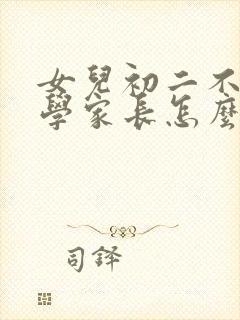 女兒初二不
學家長怎麼
司鐸